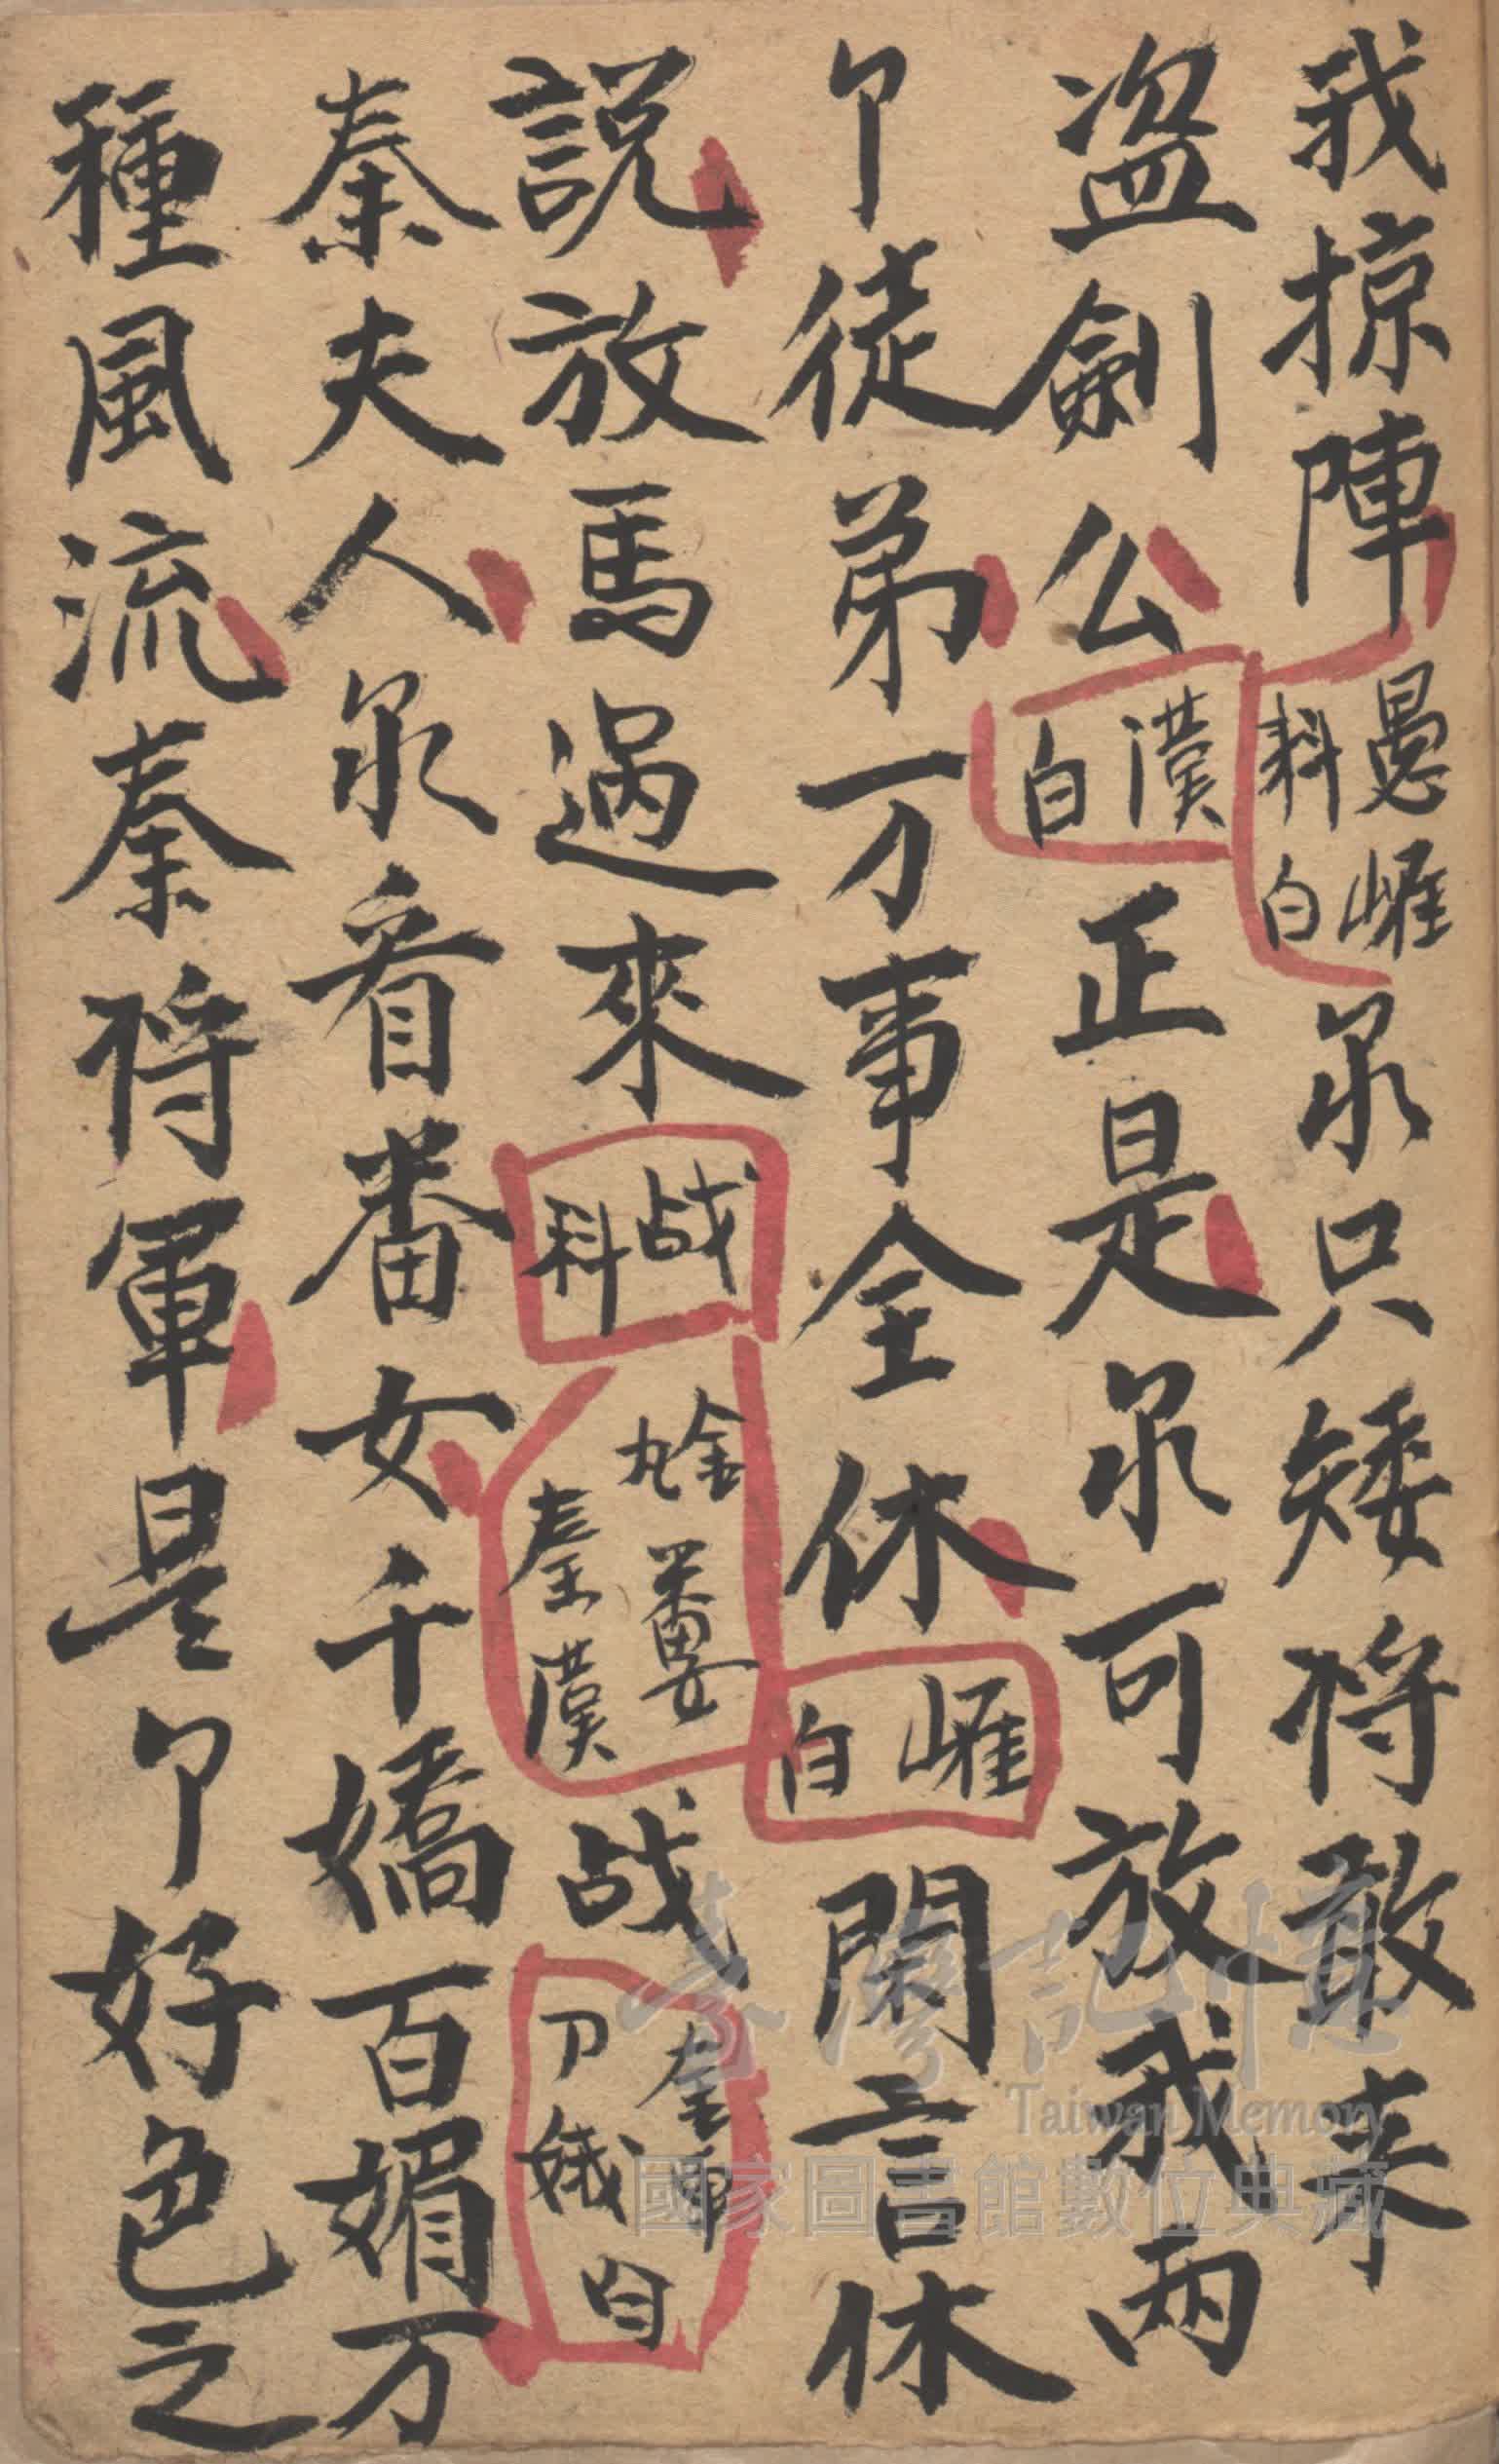 我掠陣愚崕科白汆只矮將敢来
盗劍公漢白正是汆可放我兩
卩徒弟万事全休崕白閑言休
説放馬過來战科金丸番婆秦漢战刀白
秦夫人汆看番女千嬌百媚万
種風流秦將軍是卩好色之
Taiwan Memory
臺灣記憶
國家圖書館數位典藏